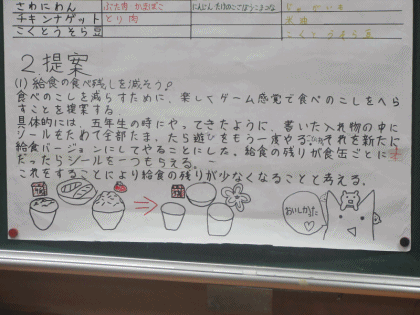 さわにわん ぶた肉 かまぼこ
チキンナゲット とり肉 米油
こくとうそら豆
2.提案
(1) 給食の食べ残しを減らそう!
食べのこしを減らすために、楽しくゲーム感覚で食べのこしをへら
すことを提案する。
具体的には、五年生の時にやってきたように、書いた入れ物の中に
シールをためて全部たまったら遊びをもう一度やる。それを新たに
給食バージョンにしてやることにした。給食の残りが食缶ごとに
だったらシールを一つもらえる。
これをすることにより給食の残りが少なくなることと考える。
おいしかった